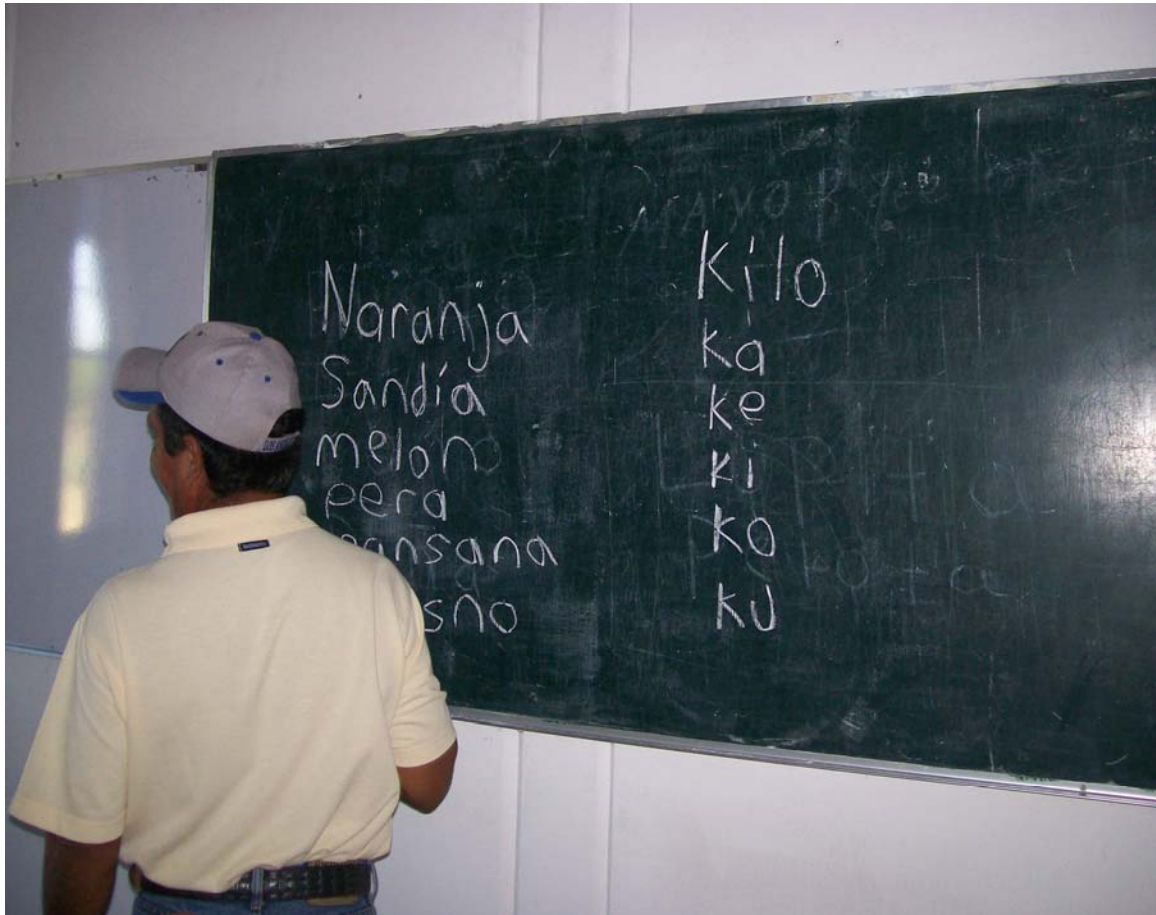 MAYOR
Naranja
Sandía
melon
pera
ansana
sno
Kilo
ka
ke
ki
ko
ku